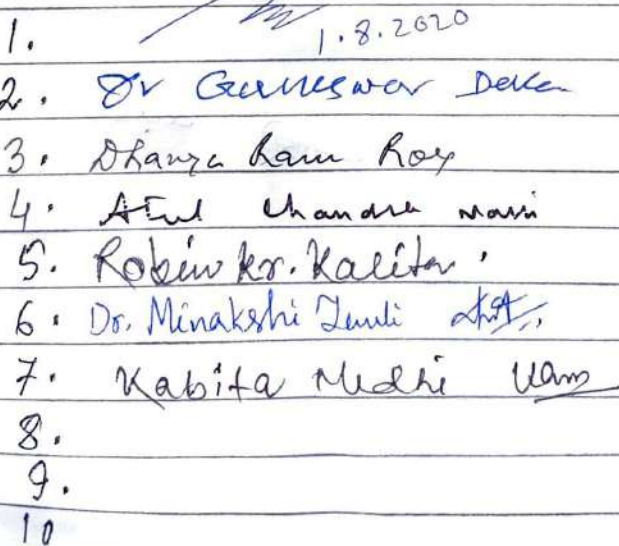 1. 1.8.2020
2. Dr Guneswar Deka
3. Dhanya Ram Roy
4. Atul Chandra
5. Robin kr. Kalita
6. Dr. Minakshi
7. Kabita Medhi
8.
9.
10